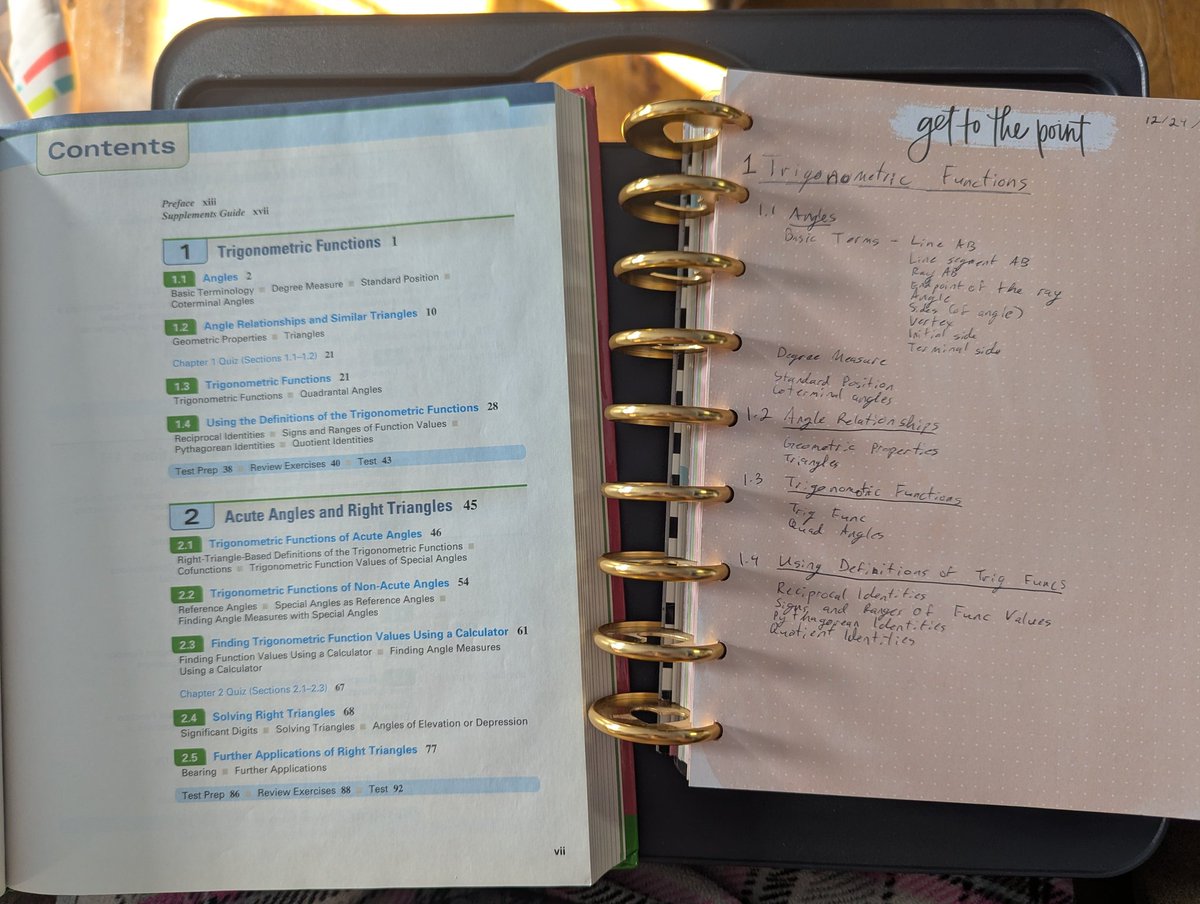 Contents
Preface xiii
Supplements Guide xvii
1 Trigonometric Functions 1
1.1 Angles 2
Basic Terminology ■ Degree Measure ■ Standard Position ■
Coterminal Angles
1.2 Angle Relationships and Similar Triangles 10
Geometric Properties ■ Triangles
Chapter 1 Quiz (Sections 1.1–1.2) 21
1.3 Trigonometric Functions 21
Trigonometric Functions ■ Quadrantal Angles
1.4 Using the Definitions of the Trigonometric Functions 28
Reciprocal Identities ■ Signs and Ranges of Function Values ■
Pythagorean Identities ■ Quotient Identities
Test Prep 38 ■ Review Exercises 40 ■ Test 43
2 Acute Angles and Right Triangles 45
2.1 Trigonometric Functions of Acute Angles 46
Right-Triangle-Based Definitions of the Trigonometric Functions ■
Cofunctions ■ Trigonometric Function Values of Special Angles
2.2 Trigonometric Functions of Non-Acute Angles 54
Reference Angles ■ Special Angles as Reference Angles ■
Finding Angle Measures with Special Angles
2.3 Finding Trigonometric Function Values Using a Calculator 61
Finding Function Values Using a Calculator ■ Finding Angle Measures
Using a Calculator
Chapter 2 Quiz (Sections 2.1–2.3) 67
2.4 Solving Right Triangles 68
Significant Digits ■ Solving Triangles ■ Angles of Elevation or Depression
2.5 Further Applications of Right Triangles 77
Bearing ■ Further Applications
Test Prep 86 ■ Review Exercises 88 ■ Test 92
vii
get to the point
12/24/
1 Trigonometric Functions
1.1 Angles
Basic Terms - Line AB
Line segment AB
Ray AB
Endpoint of the ray
Angle
Sides (of angle)
Vertex
Initial side
Terminal side
Degree Measure
Standard Position
Coterminal angles
1.2 Angle Relationships
Geometric Properties
Triangles
1.3 Trigonometric Functions
Trig Func
Quad Angles
1.4 Using Definitions of Trig Funcs
Reciprocal Identities
Signs and Ranges of Func Values
Pythagorean Identities
Quotient Identities